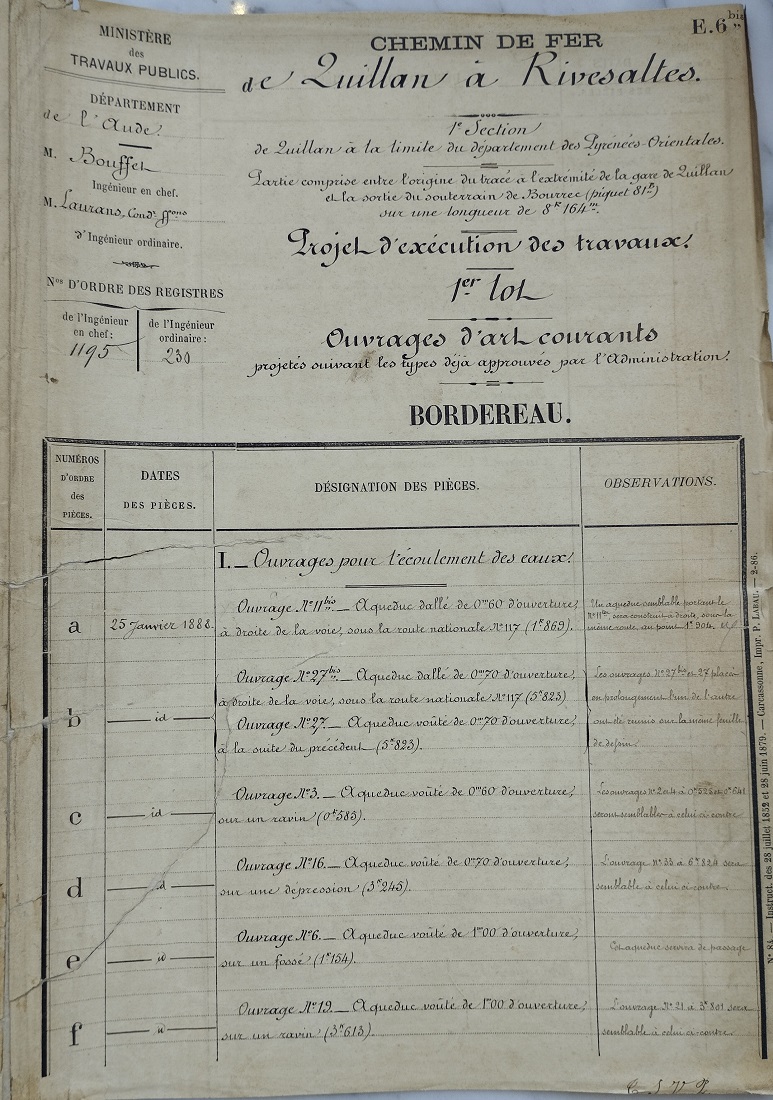 MINISTÈRE
des
TRAVAUX PUBLICS.
DÉPARTEMENT
de l'Aude.
M. Bouffet
Ingénieur en chef.
M. Laurans, Cond. ffons
d'Ingénieur ordinaire.
Nos D'ORDRE DES REGISTRES
de l'Ingénieur
en chef:
1195
de l'Ingénieur
ordinaire:
230
E.6 bis
CHEMIN DE FER
de Quillan à Rivesaltes.
1e Section
de Quillan à la limite du département des Pyrénées-Orientales.
Partie comprise entre l'origine du tracé à l'extrémité de la gare de Quillan
et la sortie du souterrain de Bourrec (piquet 81)
sur une longueur de 8k 164m.
Projet d'exécution des travaux.
1er lot
Ouvrages d'art courants
projetés suivant les types déjà approuvés par l'Administration.
BORDEREAU.
NUMÉROS
D'ORDRE
des
PIÈCES.
DATES
DES PIÈCES.
DÉSIGNATION DES PIÈCES.
OBSERVATIONS.
I._ Ouvrages pour l'écoulement des eaux.
a
25 Janvier 1888.
Ouvrage No 11bis._ Aqueduc dallé de 0m60 d'ouverture,
à droite de la voie, sous la route nationale No 117 (1k869).
Un aqueduc semblable portant le
No 11ter, sera construit à droite, sous la
même route au point 1k904.
b
id
Ouvrage No 27bis._ Aqueduc dallé de 0m70 d'ouverture,
à droite de la voie, sous la route nationale No 117 (5k823)
Ouvrage No 27._ Aqueduc voûté de 0m70 d'ouverture,
à la suite du précédent (5k823).
Les ouvrages No 27bis et 27 placés
en prolongement l'un de l'autre
ont été réunis sur la même feuille
de dessin.
c
id
Ouvrage No 3._ Aqueduc voûté de 0m60 d'ouverture,
sur un ravin (0k583).
Les ouvrages No 2 et 4 à 0k528 et 0k641
seront semblables à celui ci-contre
d
id
Ouvrage No 16._ Aqueduc voûté de 0m70 d'ouverture,
sur une dépression (3k245).
L'ouvrage No 33 à 6k824 sera
semblable à celui ci-contre.
e
id
Ouvrage No 6._ Aqueduc voûté de 1m00 d'ouverture,
sur un fossé (1k154).
Cet aqueduc servira de passage
f
id
Ouvrage No 19._ Aqueduc voûté de 1m00 d'ouverture,
sur un ravin (3k613).
L'ouvrage No 21 à 3k801 sera
semblable à celui ci-contre.
Instruct. des 28 juillet 1852 et 28 juin 1879. — Carcassonne, Impr. P. LABAU. — 2-86.